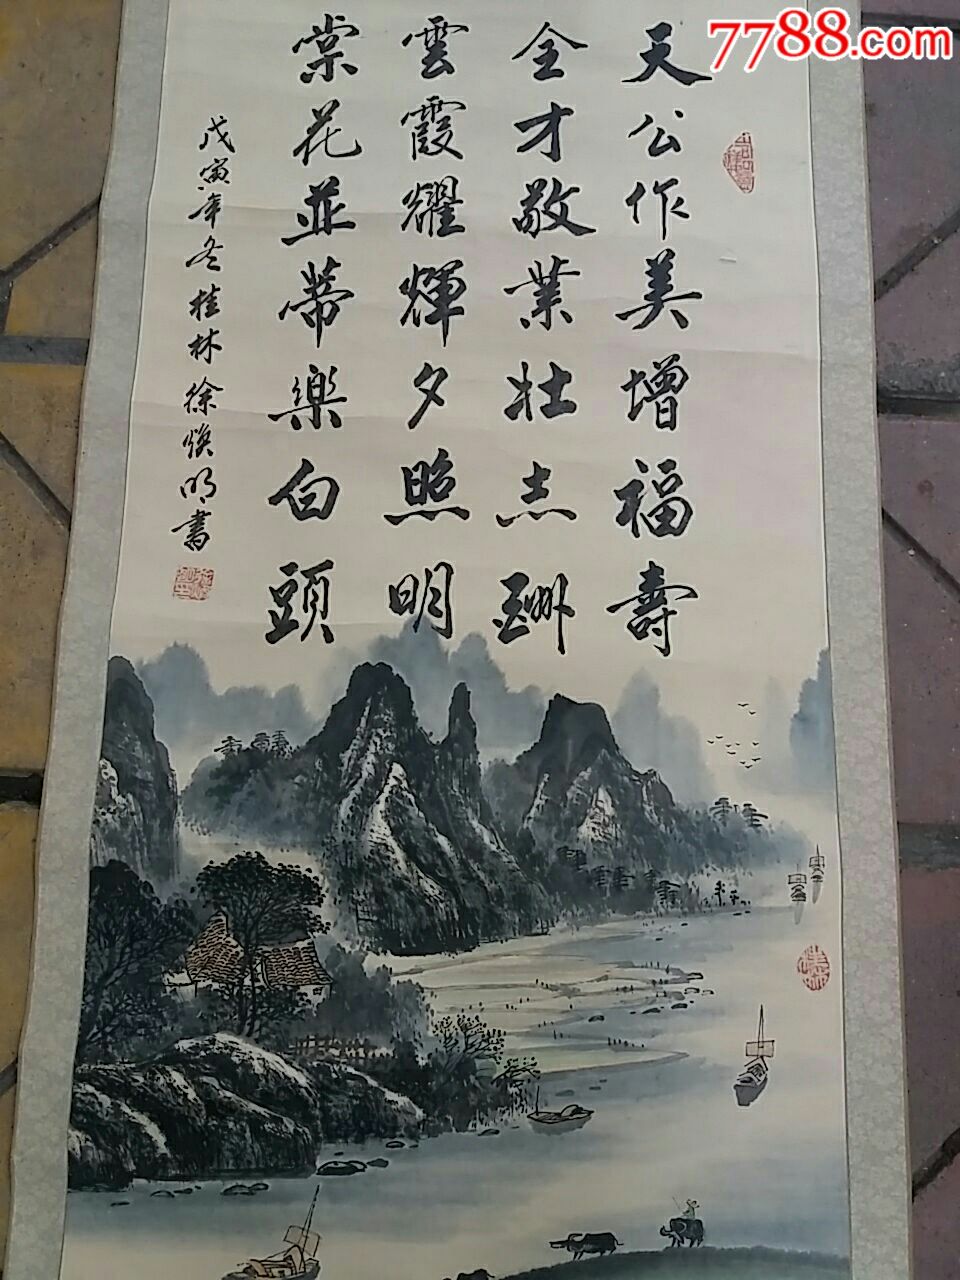 7788.com
天公作美增福壽
全才敬業壯志酬
雲霞耀輝夕照明
棠花並蒂樂白頭
戊寅年冬桂林徐煥明書